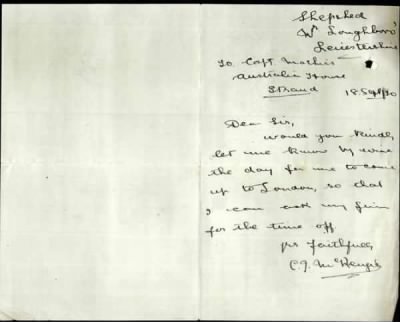 Shepshed
Nr Loughboro'
Leicestershire
To Capt. Mathis
Australia House
Strand 18 Sept/20
Dear Sir,
would you kindly
let me know by wire
the day for me to come
up to London, so that
I can ask my firm
for the time off
yrs faithfully
C.J. McKenzie